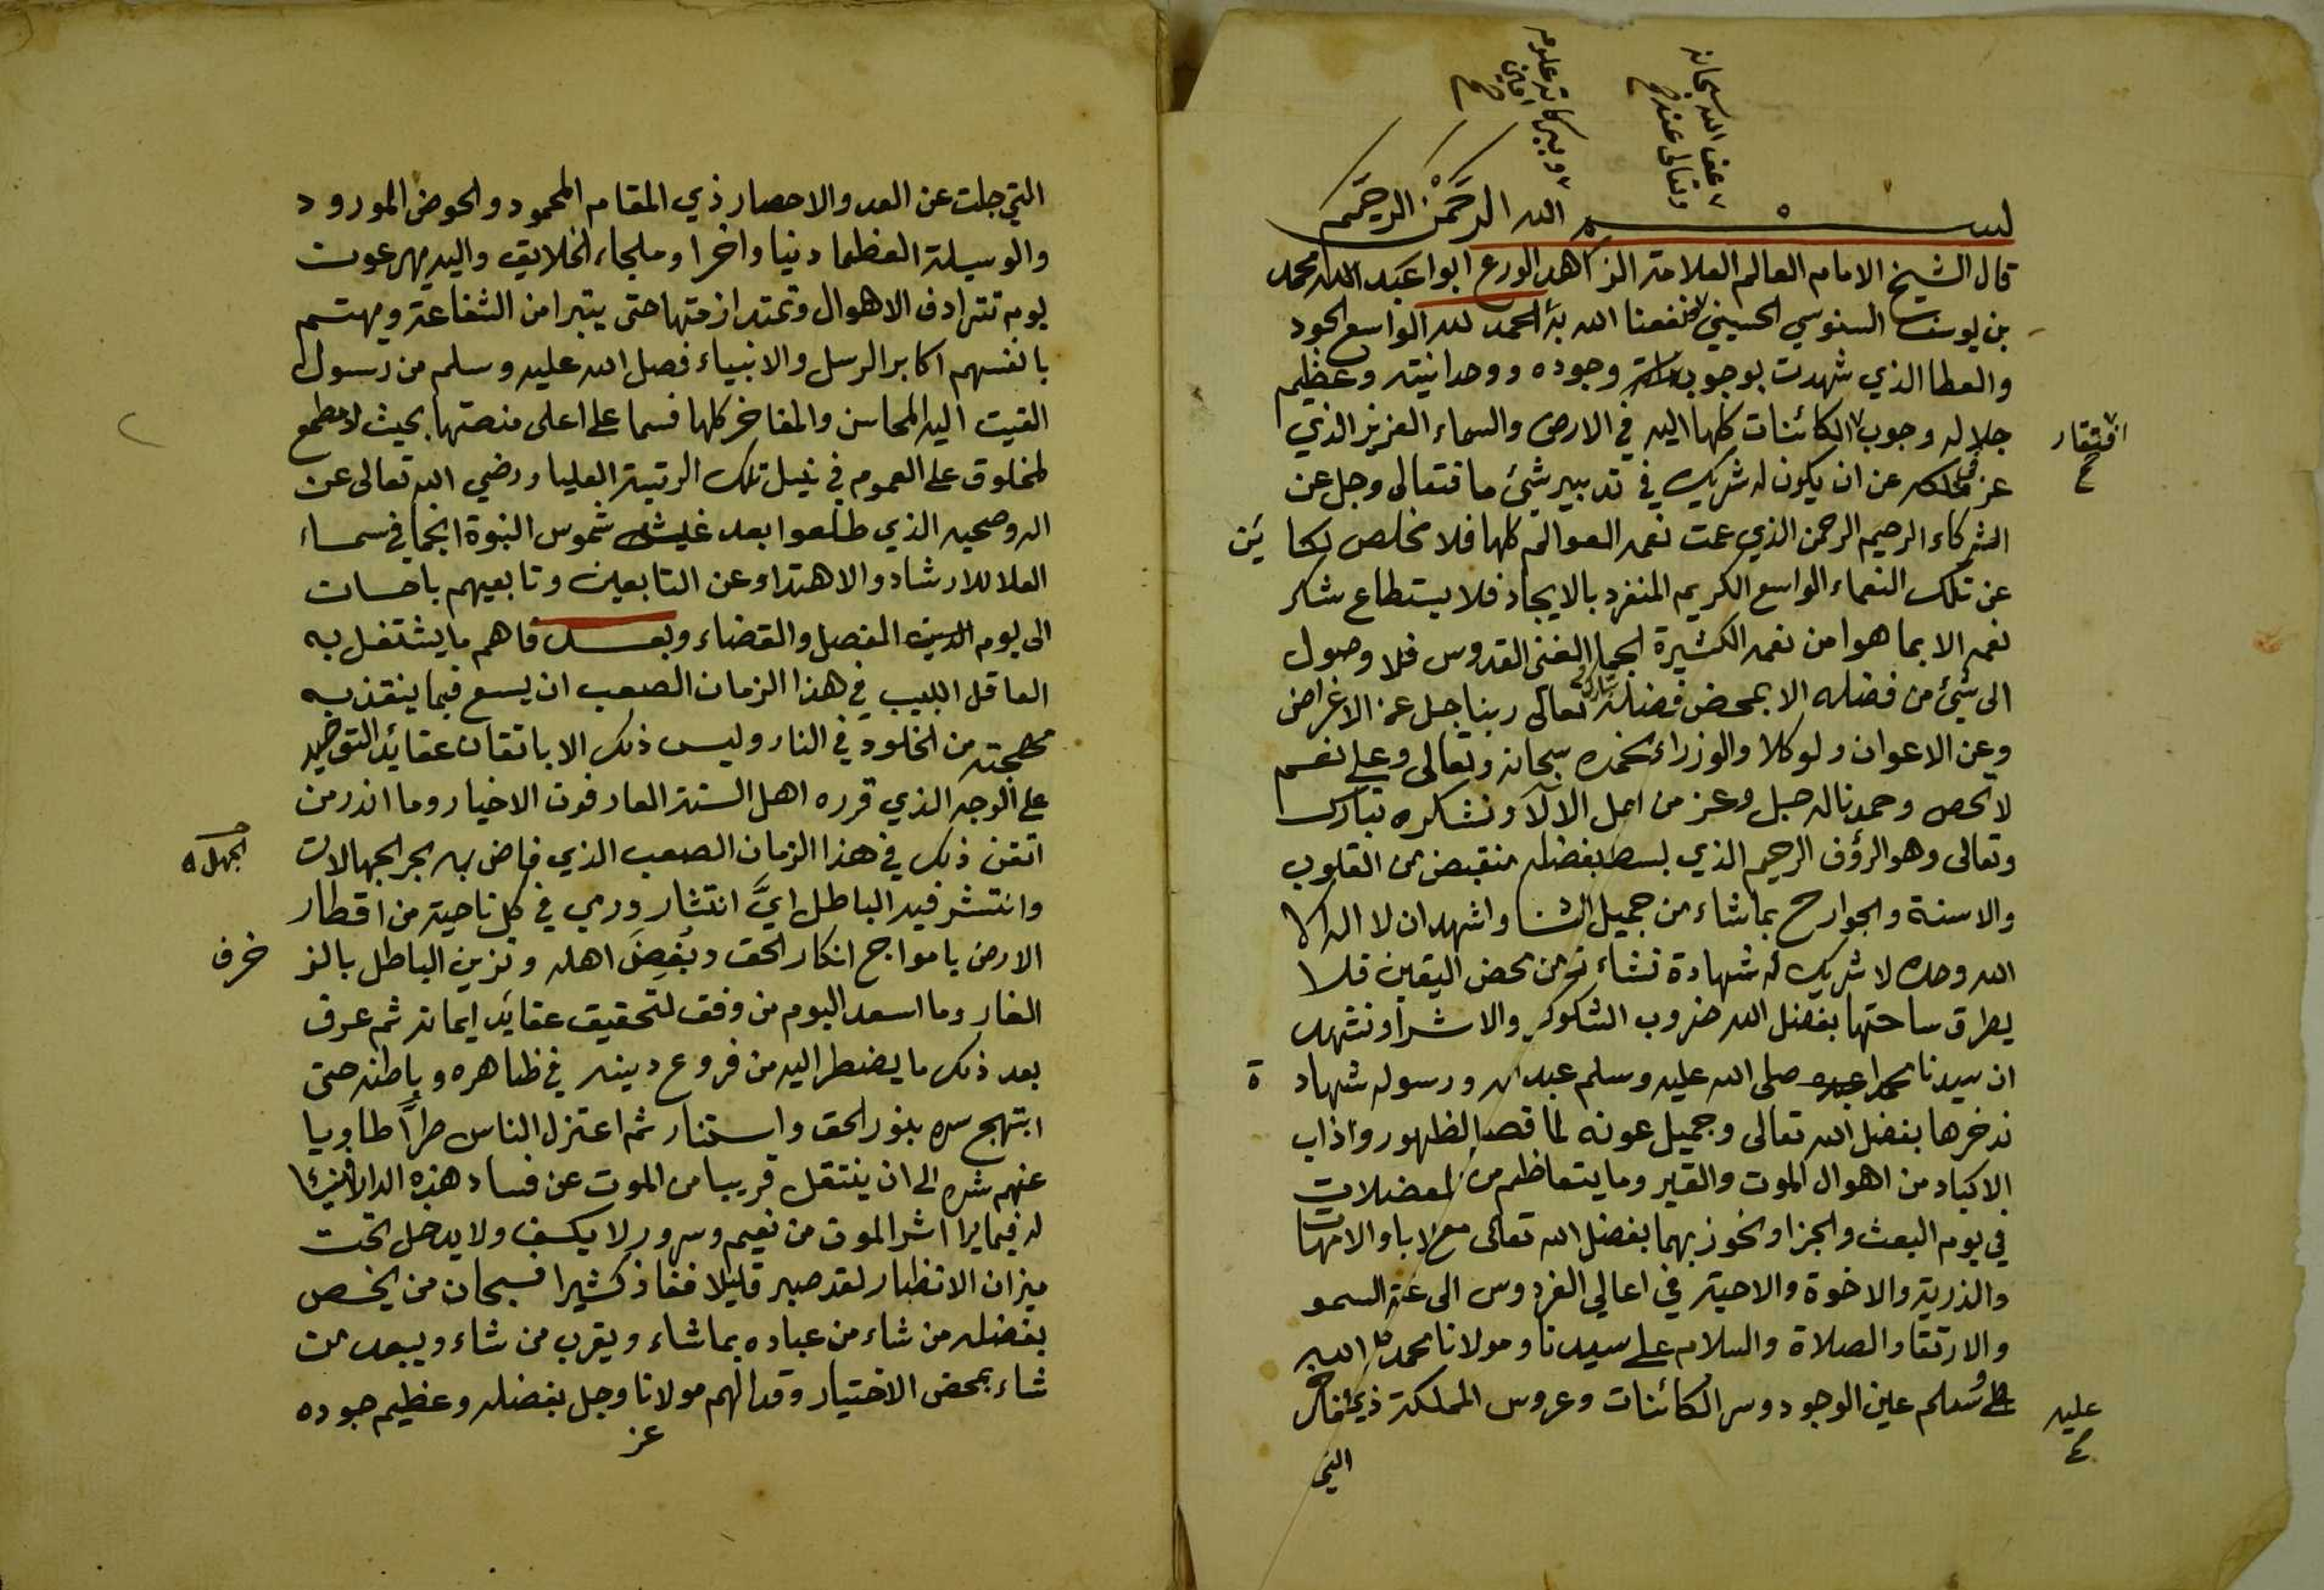 عفى الله سبحانه
وتعالى عنه صح
وببركاته علومه
امين
صح
بسم الله الرحمن الرحيم
قال الشيخ الامام العالم العلامة الزاهد الورع ابوا عبد الله محمد
بن يوسف السنوسي الحسيني ونفعنا الله به الحمد لله الواسع الجود
والعطا الذي شهدت بوجوب وجوده ووحدانيته وعظيم
جلاله وجوب الكائنات كلها اليه في الارض والسماء العزيز الذي
افتقار
صح
عز في ملكه عن ان يكون له شريك في تدبير شيئ ما فتعالى وجل عن
الشركاء الرحيم الرحمن الذي عمت نعمه العوالم كلها فلا مخلص لكائن
عن تلك النعماء الواسع الكريم المنفرد بالايجاد فلا يستطاع شكر
نعمه الا بما هوا من نعمه الكثيرة الجما الغنى القدوس فلا وصول
الى شيئ من فضله الا بمحض فضله تبارك تعالى ربنا جل عن الاغراض
وعن الاعوان ولوكلا والوزراء نحمده سبحانه وتعالى وعلى نعم
لا تحصى وحمدنا له جل وعز من اجل الالآ ونشكره تبارك
وتعالى وهو الرؤف الرحيم الذي بسط بفضله منقبض من القلوب
والاسنة والجوارح بما شاء من جميل الثنا واشهد ان لا اله الا
الله وحده لا شريك له شهادة تشاء من محض اليقين فلا
يطرق ساحتها بفضل الله ضروب الشكوك والاشرا ونشهد
ان سيدنا محمدا عبده صلى الله عليه وسلم عبد الله ورسوله شهادة
ندخرها بفضل الله تعالى وجميل عونه لما قصم الظهور واذاب
الاكباد من اهوال الموت والقبر وما يتعاظم من المعضلات
في يوم البعث والجزا ونحوز بهما بفضل الله تعالى مع الابا والامهات
والذرية والاخوة والاحبة في اعالي الفردوس الى السمو
والارتقا والصلاة والسلام على سيدنا ومولانا محمد صلى الله
وسلم عين الوجود وسر الكائنات وعروس المملكة ذي المفاخر
عليه
صح
التي
التي جلت عن العد والاحصار ذي المقام المحمود والحوض المورود
والوسيلة العظما دنيا واخرا وملجاء الخلايق واليه يهرعون
يوم تترادف الاهوال وتمتد ازمتها حتى يتبرا من الشفاعة ويهتم
بانفسهم اكابر الرسل والانبياء فصلى الله عليه وسلم من رسول
القيت اليه المحاسن والمفاخر كلها فسما على اعلى منصتها بحيث لا مطمع
لمخلوق على العموم في نيل تلك الرتبة العليا ورضي الله تعالى عن
اله وصحبه الذي طلعوا بعد شموس النبوة انجما في سماء
العلا للارشاد والاهتداء وعن التابعين وتابعيهم باحسان
الى يوم الدين الفصل والقضاء وبعد فاهم ما يشتغل به
العاقل اللبيب في هذا الزمان الصعب ان يسع فيما ينقذ به
مهجته من الخلود في النار وليس ذلك الا باتقان عقائد التوحيد
على الوجه الذي قرره اهل السنة العارفون الاخيار وما اندر من
اتقن ذلك في هذا الزمان الصعب الذي فاض به بحر الجهالات
الجهالة
وانتشر فيه الباطل ايَّ انتشار ورمى في كل ناحية من اقطار
الارض بامواج انكار الحق وبُغضِ اهله وتزيين الباطل بالزخرف
الغار وما اسعد اليوم من وفق لتحقيق عقايد ايمانه ثم عرف
بعد ذلك ما يضطر اليه من فروع دينه في ظاهره وباطنه حتى
ابتهج سره بنور الحق واستنار ثم اعتزل الناس طراً طاويا
عنهم شره الى ان ينتقل قريبا من الموت عن فساد هذه الدار
له فيما يرا اشر الموت من نعيم وسرور لا يكسف ولا يدخل تحت
ميزان الانظار لقد صبر قليلا ففاز كثيرا فسبحان من يخص
بفضله من شاء من عباده بما شاء ويقرب من شاء ويبعد من
شاء بمحض الاختيار وقد الهم مولانا وجل بفضله وعظيم جوده
عز